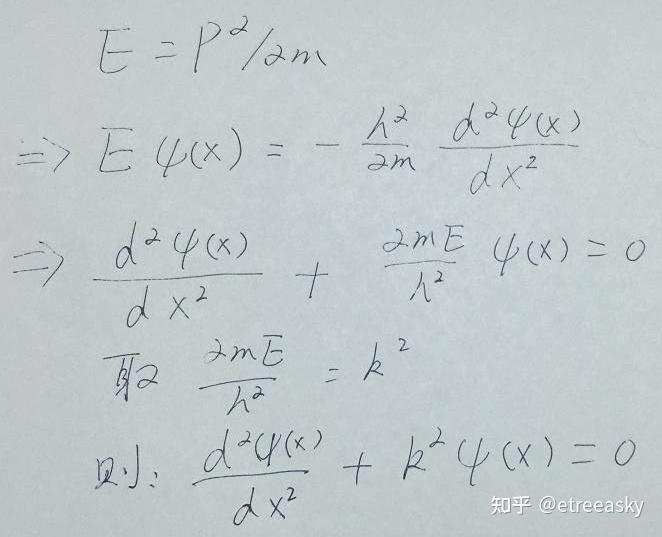 E = P²/2m
⇒ E ψ(x) = - h²/2m d²ψ(x)/dx²
⇒ d²ψ(x)/dx² + 2mE/h² ψ(x) = 0
取 2mE/h² = k²
则: d²ψ(x)/dx² + k² ψ(x) = 0
知乎 @etreeasky